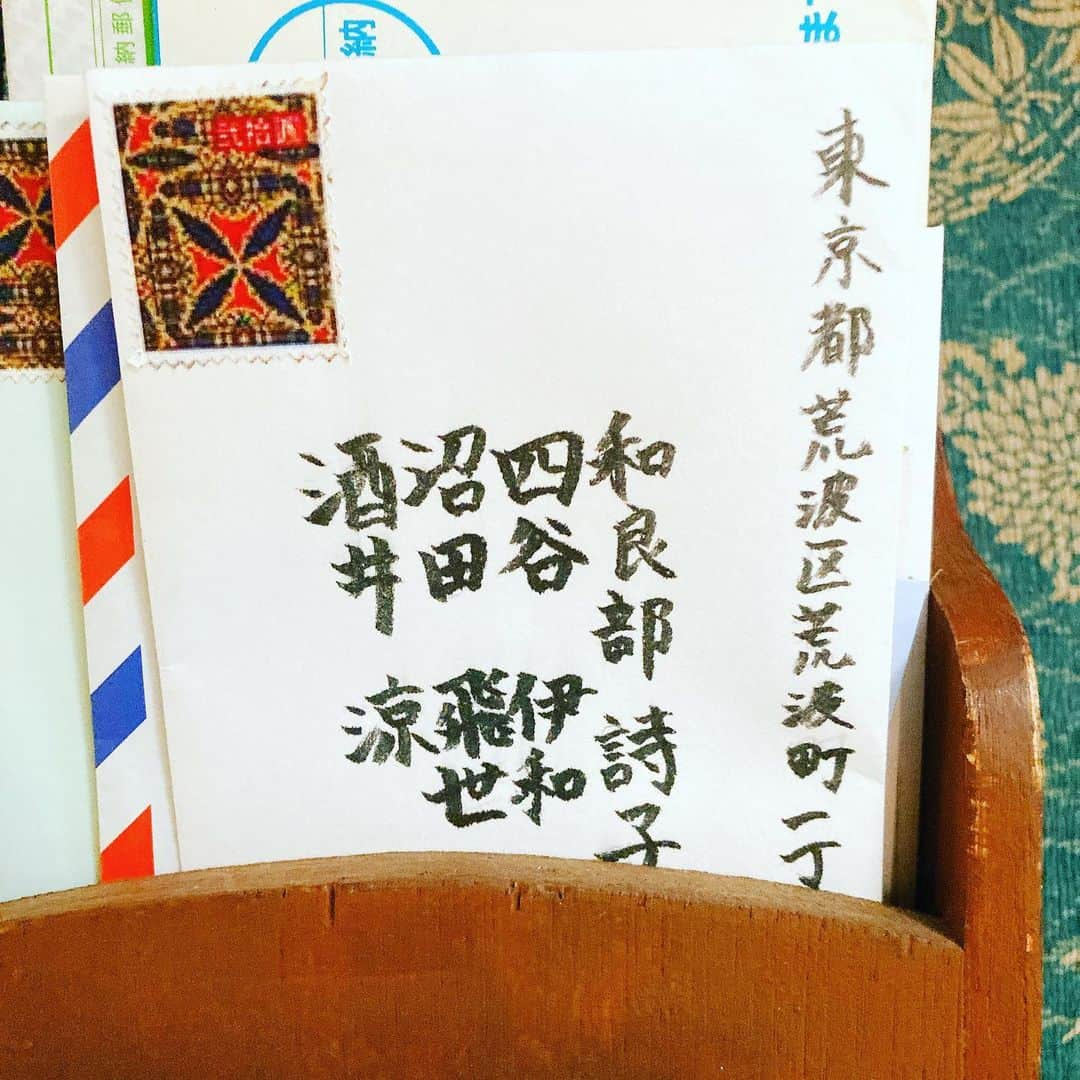 東京都荒波区荒波町一丁
和良部 詩子
四谷 伊和
沼田 飛世
酒井 涼
納
ま
納郵